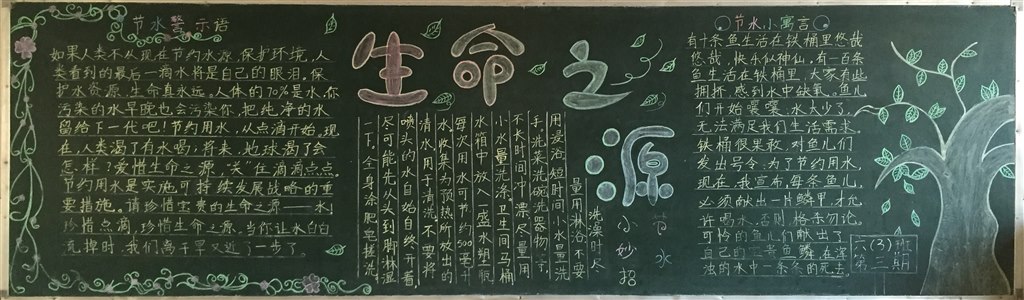 节水警示语
如果人类不从现在节约水源,保护环境,人
类看到的最后一滴水将是自己的眼泪。保
护水资源,生命真永远。人体的70%是水,你
污染的水早晚也会污染你,把纯净的水
留给下一代吧!节约用水,从点滴开始。现
在,人类渴了有水喝;将来,地球渴了会
怎样?爱惜生命之源,"关"住滴滴点点。
节约用水是实施可持续发展战略的重
要措施。请珍惜宝贵的生命之源——水!
珍惜点滴,珍惜生命之源。当你让水白白
流掉时,我们离干旱又近了一步了。
生命之源
节水
小妙招
洗澡时尽
量用淋浴,不要
用浸浴,短时间小水量洗
手,洗菜,洗碗,洗器物
不长时间冲漂,尽量用
小水量洗涤,卫生间马桶
水箱中放入一盛水塑瓶
每次用水可节约500毫升
水,收集为预热所放出的
清水用于清洗,不要将
喷头的水自始自终开着
尽可能先从头到脚淋湿
一下,全身涂肥皂搓洗
节水小寓言
有十条鱼生活在铁桶里悠哉
悠哉,快乐似神仙,有一百条
鱼生活在铁桶里,大家有些
拥挤,感到水中缺氧。鱼儿
们开始嚷嚷,水太少了,
无法满足我们生活需求。
铁桶很果敢,对鱼儿们
发出号令:为了节约用水,
现在,我宣布,每条鱼儿,
必须献出一片鳞甲,才允
许喝水,否则,格杀勿论。
可怜的鱼儿们献出了
自己的鱼鳞在浑
浊的水中一条条的死去。
六(3)班
第三期